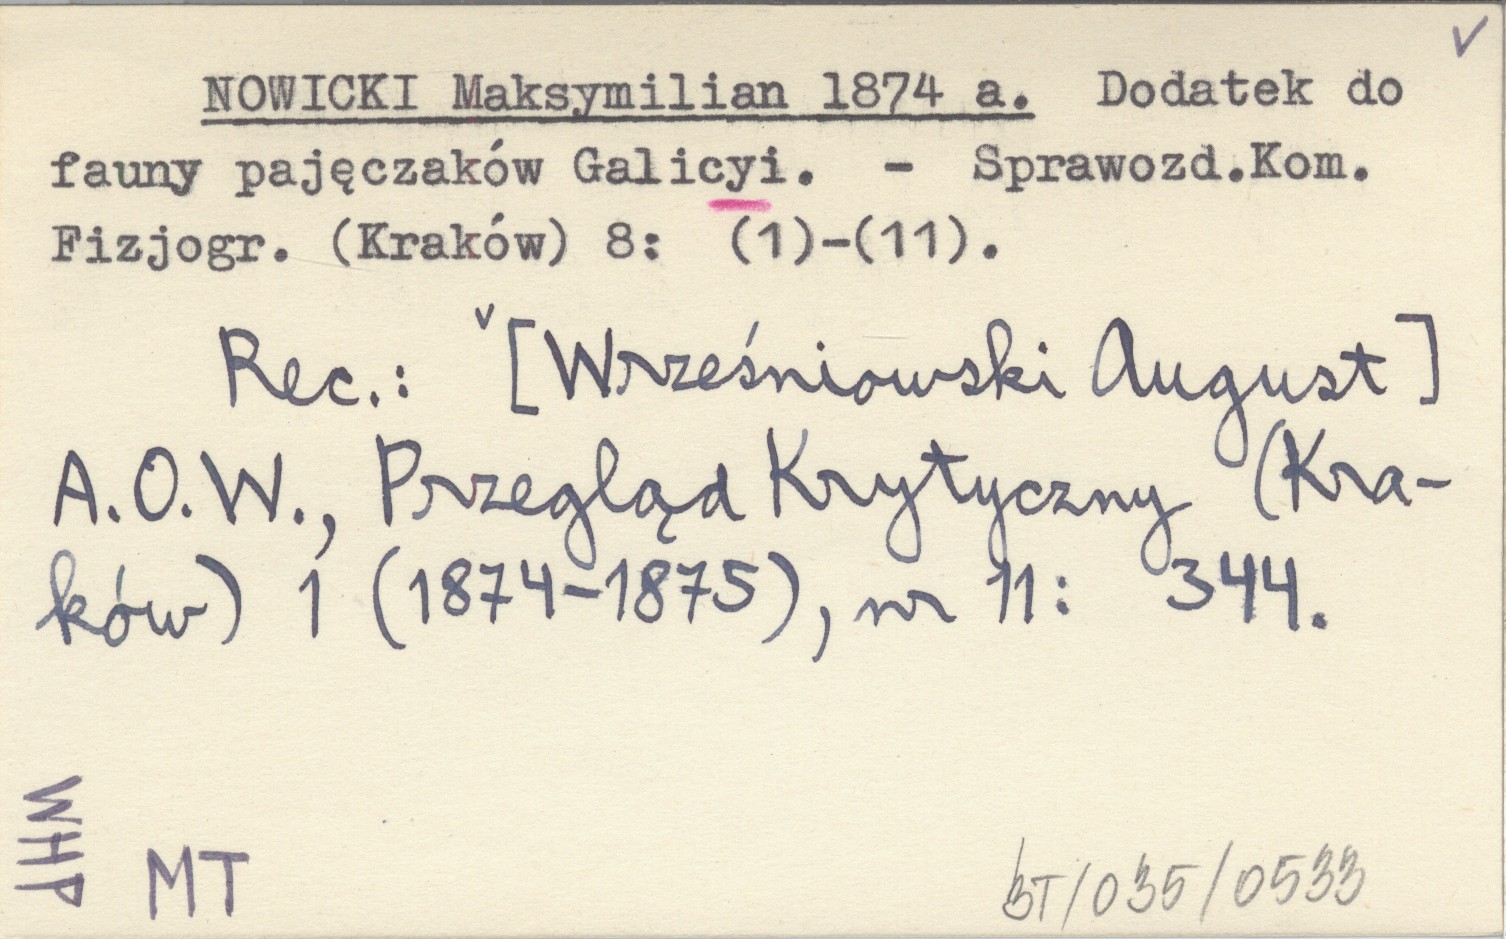 NOWICKI Maksymilian 1874 a. Dodatek do
fauny pajęczaków Galicyi. - Sprawozd.Kom.
Fizjogr. (Kraków) 8: (1)-(11).
Rec.: [Wrześniowski August]
A.O.W., Przegląd Krytyczny (Kra-
ków) 1 (1874-1875), nr 11: 344.
WHP
MT
BT/035/0533